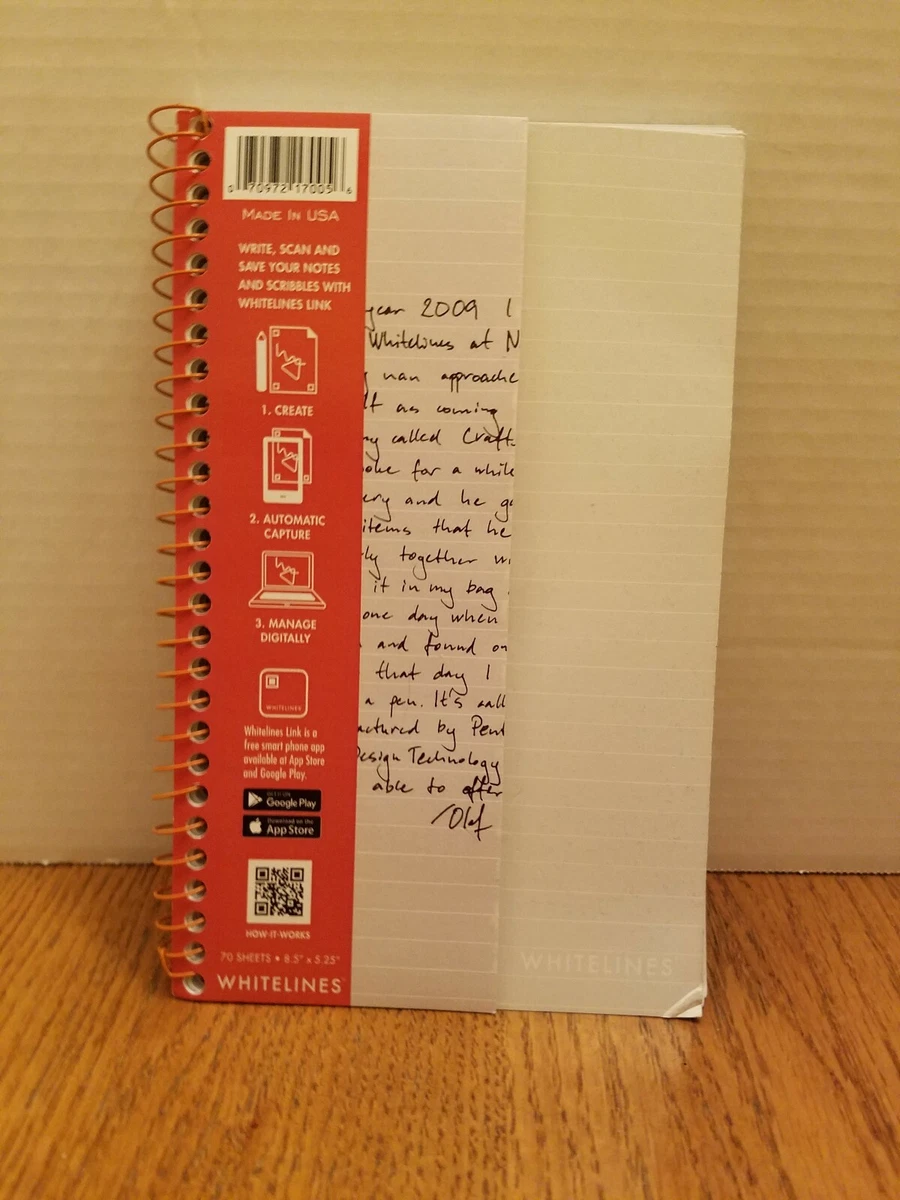 0 70972 17005 6
MADE IN USA
WRITE, SCAN AND
SAVE YOUR NOTES
AND SCRIBBLES WITH
WHITELINES LINK
1. CREATE
2. AUTOMATIC
CAPTURE
3. MANAGE
DIGITALLY
WHITELINES
Whitelines Link is a
free smart phone app
available at App Store
and Google Play.
GET IT ON
Google Play
Download on the
App Store
HOW-IT-WORKS
70 SHEETS • 8.5" x 5.25"
WHITELINES™
year 2009 I
Whitelines at N
man approache
lf as coming
ny called Craft
oke for a while
ery and he ga
items that he
ly together wi
it in my bag.
one day when
and found on
that day I
a pen. It's call
actured by Pent
Design Technology
able to offer
/Olof
WHITELINES